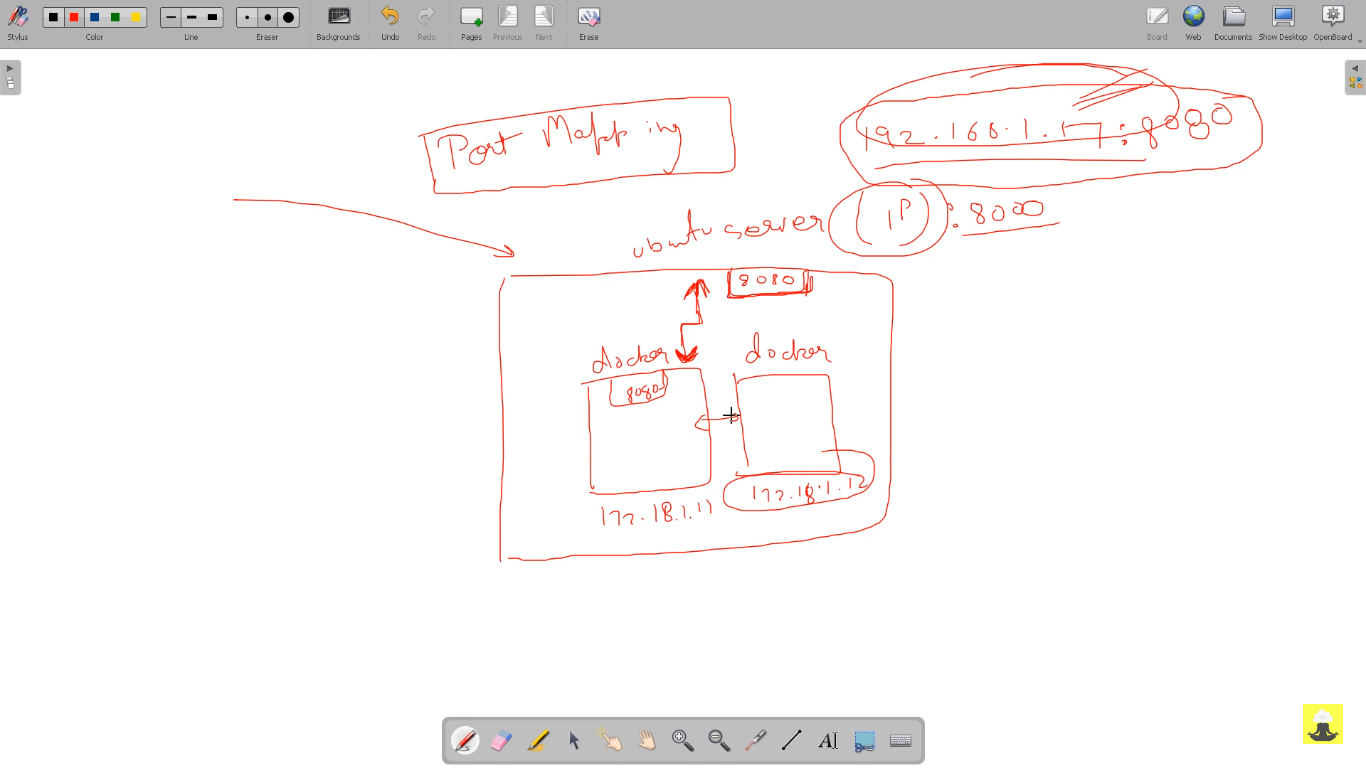 Stylus
Color
Line
Eraser
Backgrounds
Undo
Redo
Pages
Previous
Next
Erase
Board
Web
Documents
Show Desktop
OpenBoard
Port Mapping
192.168.1.17:8080
ubuntu server (IP):8000
8080
docker
docker
8080
172.18.1.11
172.18.1.12